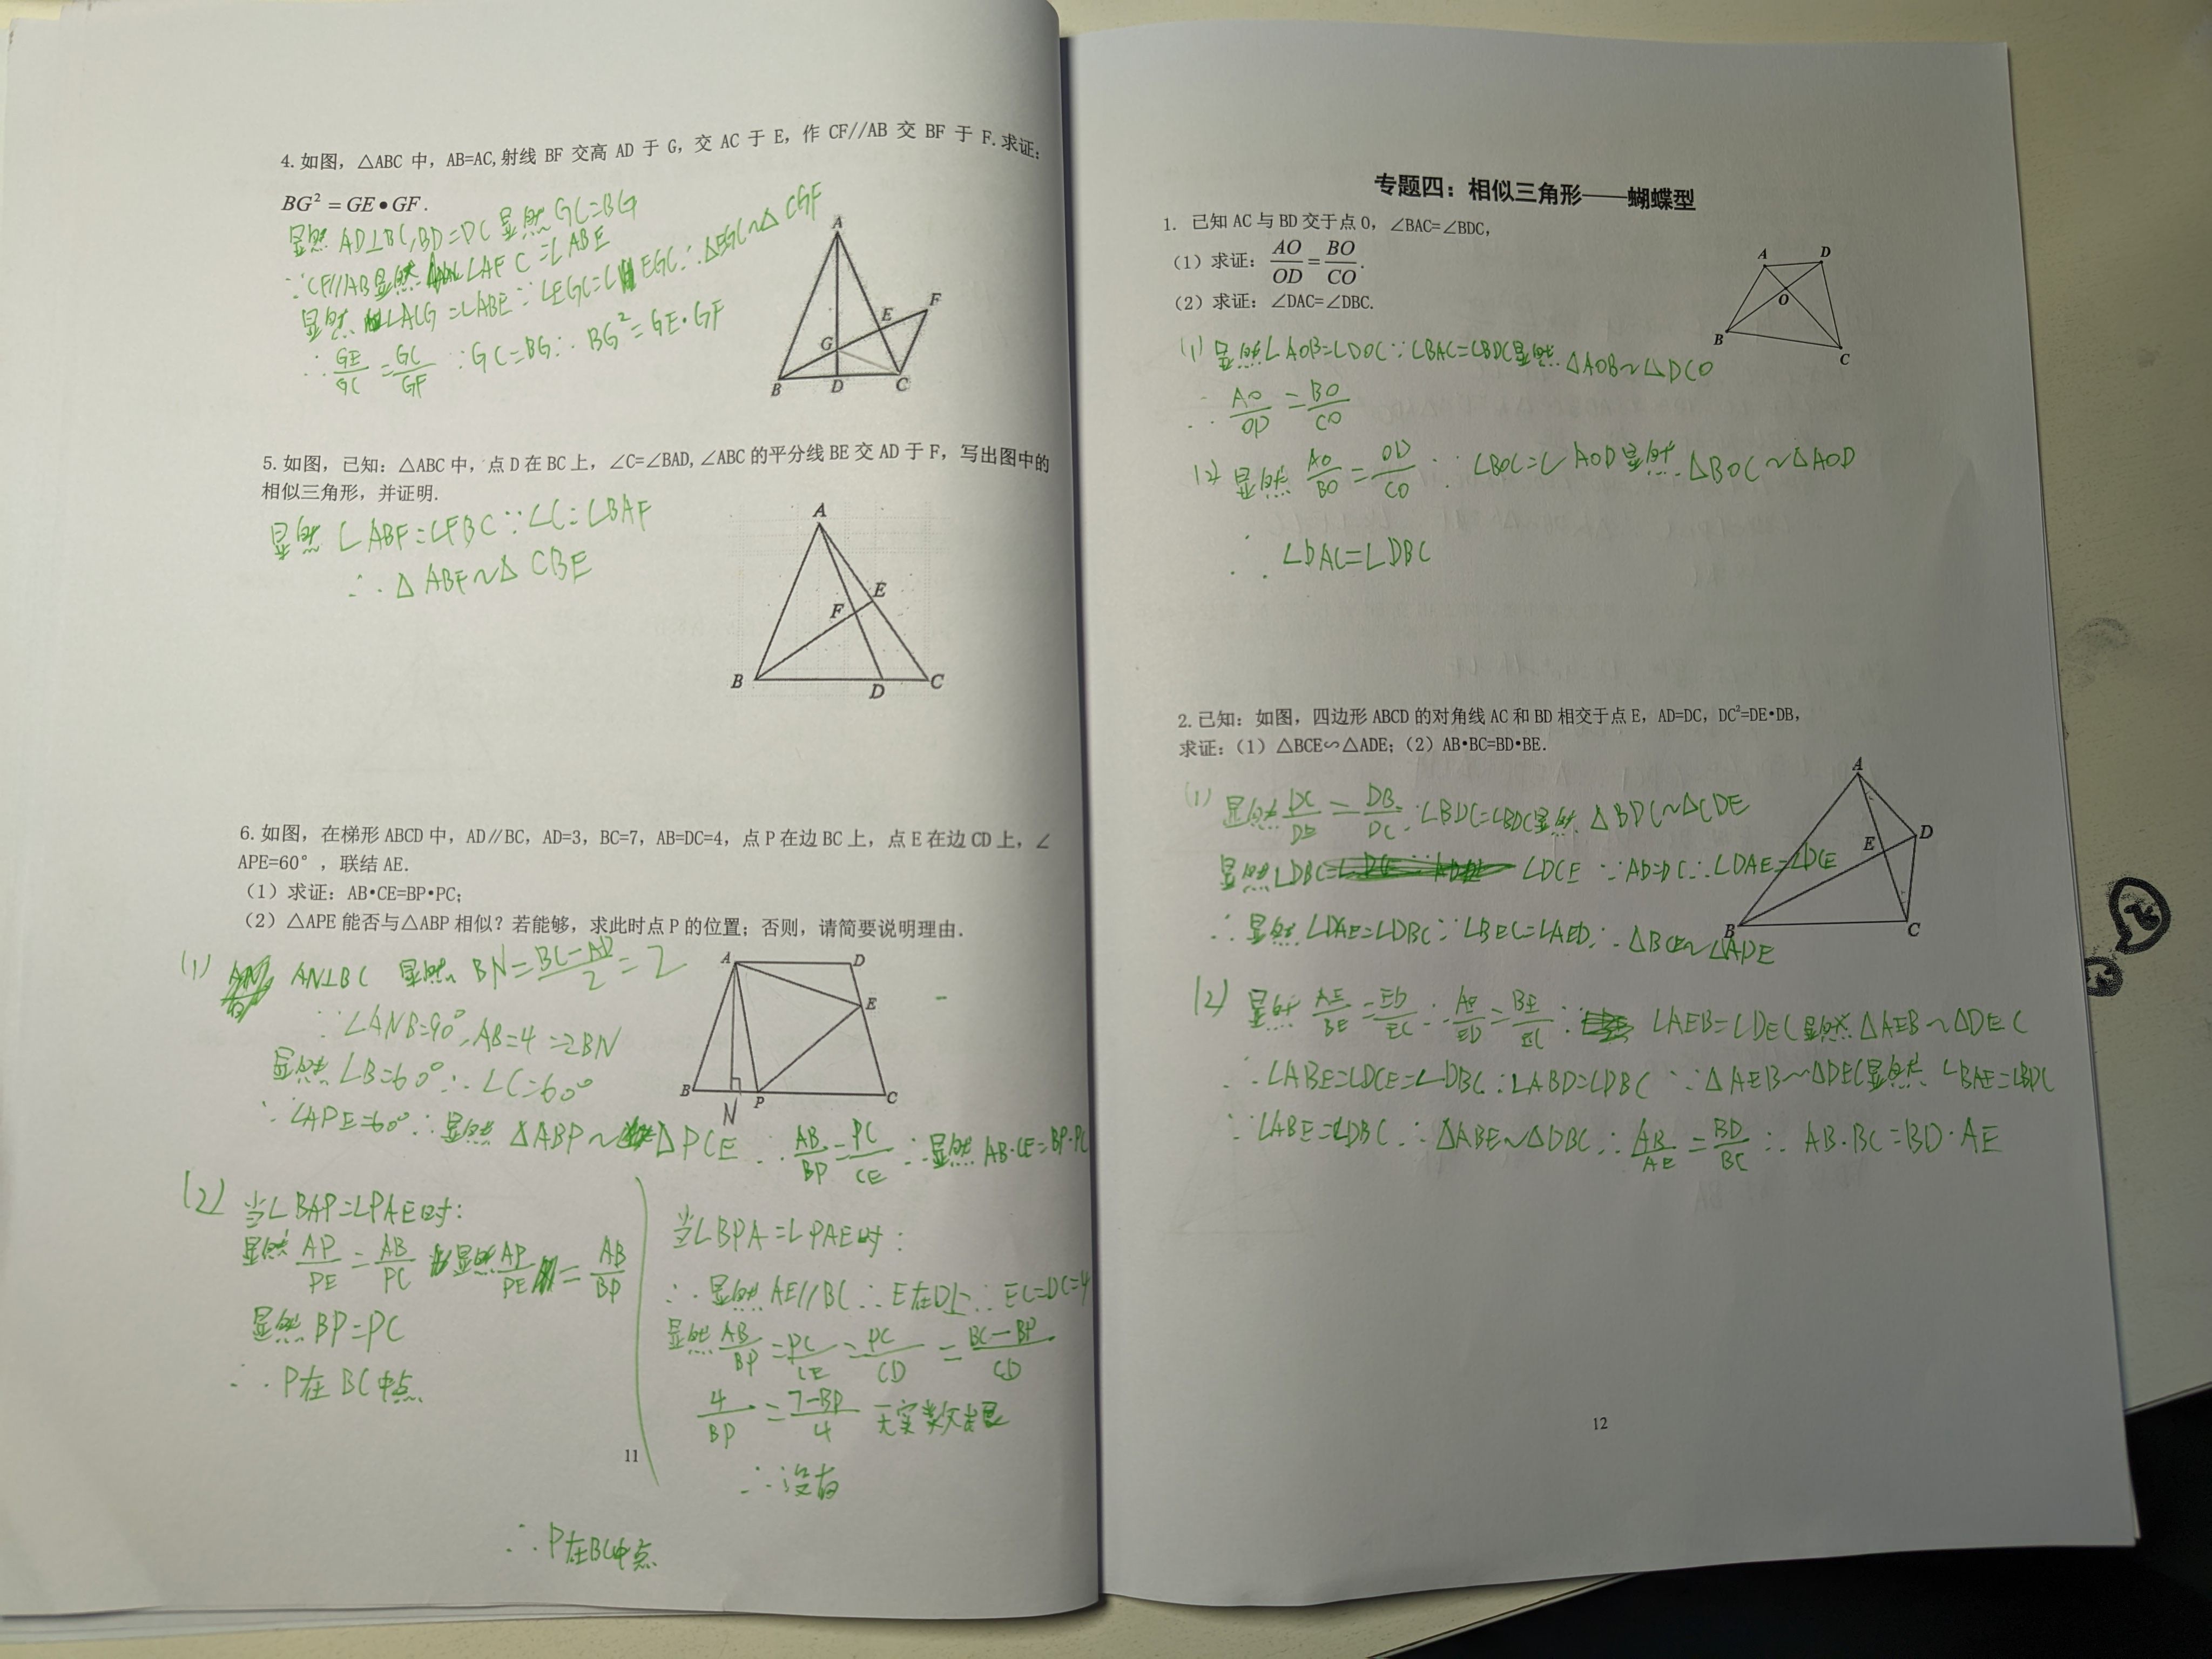 4.如图，△ABC 中，AB=AC,射线 BF 交高 AD 于 G，交 AC 于 E，作 CF//AB 交 BF 于 F.求证：
BG²=GE•GF.
显然 AD⊥BC,BD=DC 显然 GC=BG
∵CF//AB显然 ∠AFC=∠ABE
显然 ∠ACG=∠ABE∵∠EGC=∠EGC∴△EGC~△CGF
∴GE/GC=GC/GF ∵GC=BG∴BG²=GE·GF
A
F
E
G
B D C
5.如图，已知：△ABC 中，点 D 在 BC 上，∠C=∠BAD,∠ABC 的平分线 BE 交 AD 于 F，写出图中的
相似三角形，并证明.
显然 ∠ABF=∠FBC∵∠C=∠BAF
∴△ABF~△CBE
A
E
F
B D C
6.如图，在梯形 ABCD 中，AD∥BC，AD=3，BC=7，AB=DC=4，点 P 在边 BC 上，点 E 在边 CD 上，∠
APE=60°，联结 AE.
（1）求证：AB•CE=BP•PC;
（2）△APE 能否与△ABP 相似？若能够，求此时点 P 的位置；否则，请简要说明理由.
(1) AN⊥BC 显然 BN=(BC-AD)/2=2
∵∠ANB=90°,AB=4=2BN
显然 ∠B=60°∴∠C=60°
∵∠APE=60°∴显然 △ABP~△PCE ∴AB/BP=PC/CE ∴显然 AB·CE=BP·PC
A D
E
B N P C
(2) 当∠BAP=∠PAE时:
显然 AP/PE=AB/PC 显然 AP/PE=AB/BP
显然 BP=PC
∴P在BC中点
当∠BPA=∠PAE时:
∴显然 AE//BC∴E在D上∴EC=DC=4
显然 AB/BP=PC/CE=PC/CD=(BC-BP)/CD
4/BP=(7-BP)/4 无实数根
∴没有
∴P在BC中点
11
专题四：相似三角形——蝴蝶型
1. 已知 AC 与 BD 交于点 O，∠BAC=∠BDC，
（1）求证：AO/OD=BO/CO.
（2）求证：∠DAC=∠DBC.
A D
O
B
C
(1) 显然∠AOB=∠DOC∵∠BAC=∠BDC显然 △AOB~△DCO
∴AO/OD=BO/CO
(2) 显然 AO/BO=OD/CO ∵∠BOC=∠AOD显然 △BOC~△AOD
∴∠DAC=∠DBC
2.已知：如图，四边形 ABCD 的对角线 AC 和 BD 相交于点 E，AD=DC，DC²=DE•DB，
求证：（1）△BCE∽△ADE;（2）AB•BC=BD•BE.
A
D
E
B
C
(1) 显然 DC/DE=DB/DC ∵∠BDC=∠BDC显然 △BDC~△CDE
显然∠DBC=∠DCE ∵AD=DC∴∠DAE=∠DCE
∴显然 ∠DAE=∠DBC∵∠BEC=∠AED∴△BCE~△ADE
(2) 显然 AE/BE=ED/EC∴AE/ED=BE/EC∵∠AEB=∠DEC显然 △AEB~△DEC
∴∠ABE=∠DCE=∠DBC∴∠ABD=∠DBC ∵△AEB~△DEC显然 ∠BAE=∠BDC
∵∠ABE=∠DBC∴△ABE~△DBC∴AB/AE=BD/BC∴AB·BC=BD·AE
12